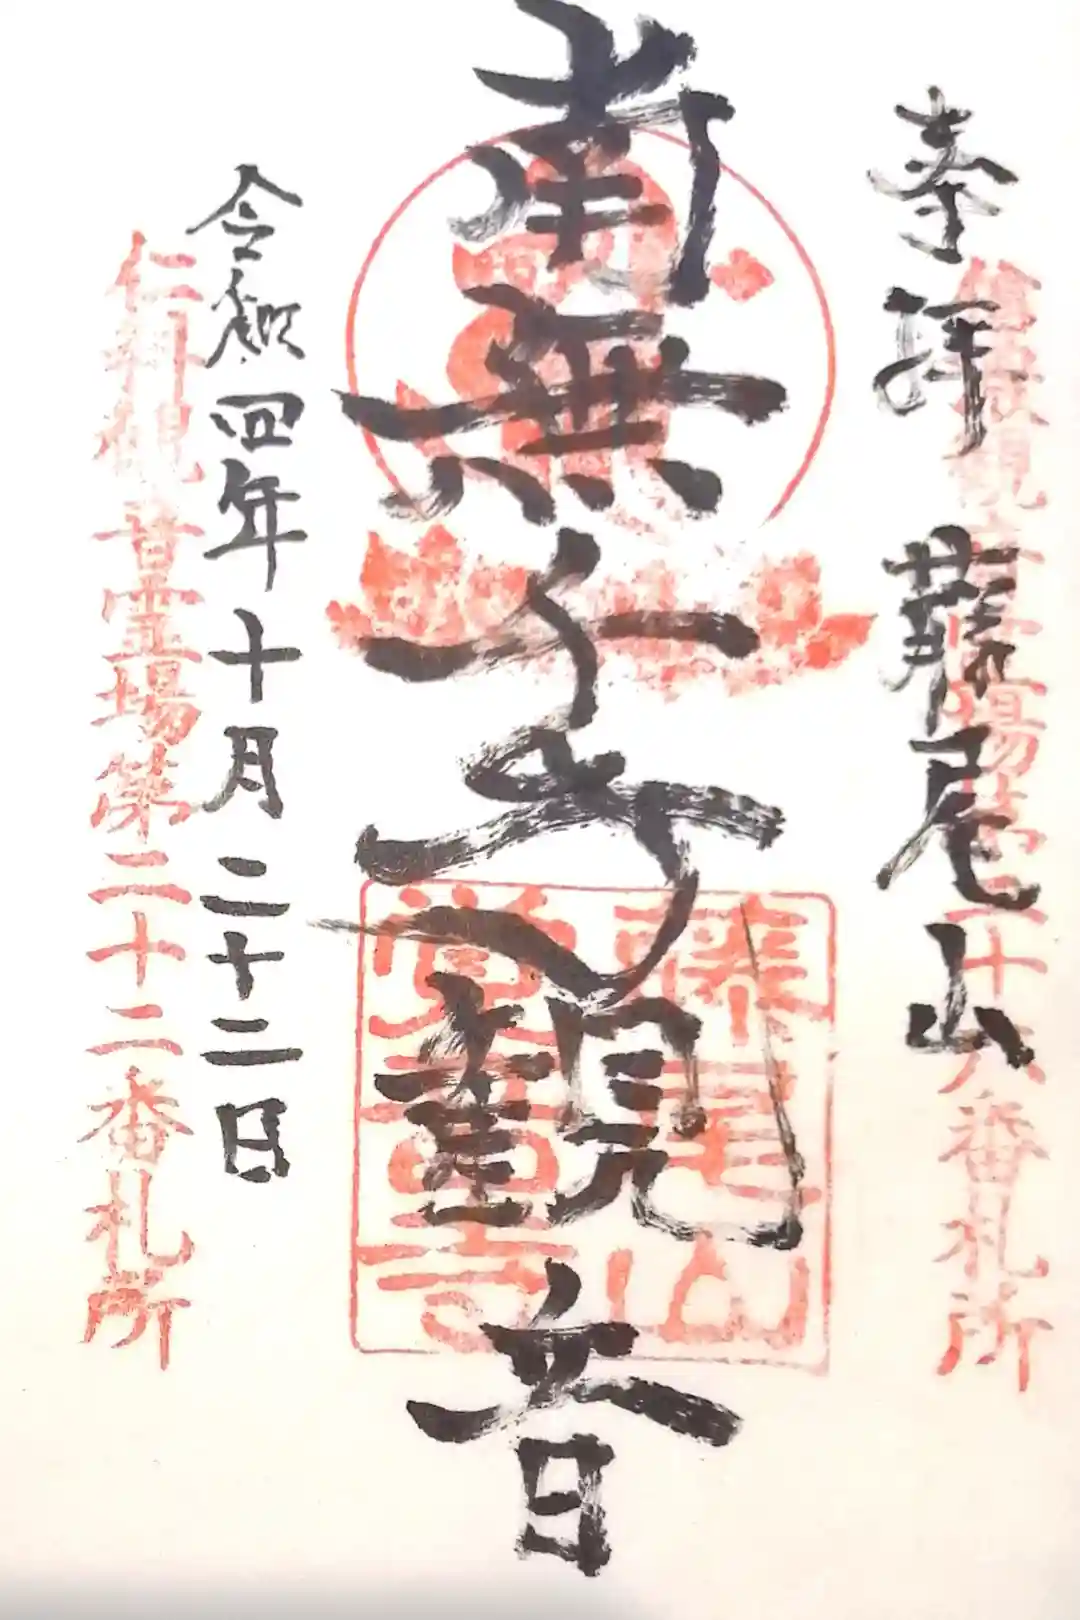 奉拝 藤尾山
観音霊場第二十六番札所
南無千手観音
藤尾山
覚音寺
令和四年十月二十二日
仁科観音霊場第二十二番札所